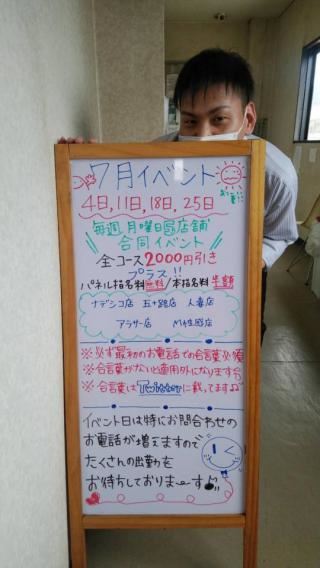 7月イベント
4日,11日,18日,25日
毎週月曜日5店舗
合同イベント
全コース2000円引き
プラス!!
パネル指名料無料/本指名料半額
ナデシコ店 五十路店 人妻店
アラサー店 M性感店
※必ず最初のお電話での合言葉必須
※合言葉がないと適用外になります
※合言葉はTwitterに載ってます♪
イベント日は特にお問合わせの
お電話が増えますので
たくさんの出勤を
お待ちしておりまーす♪